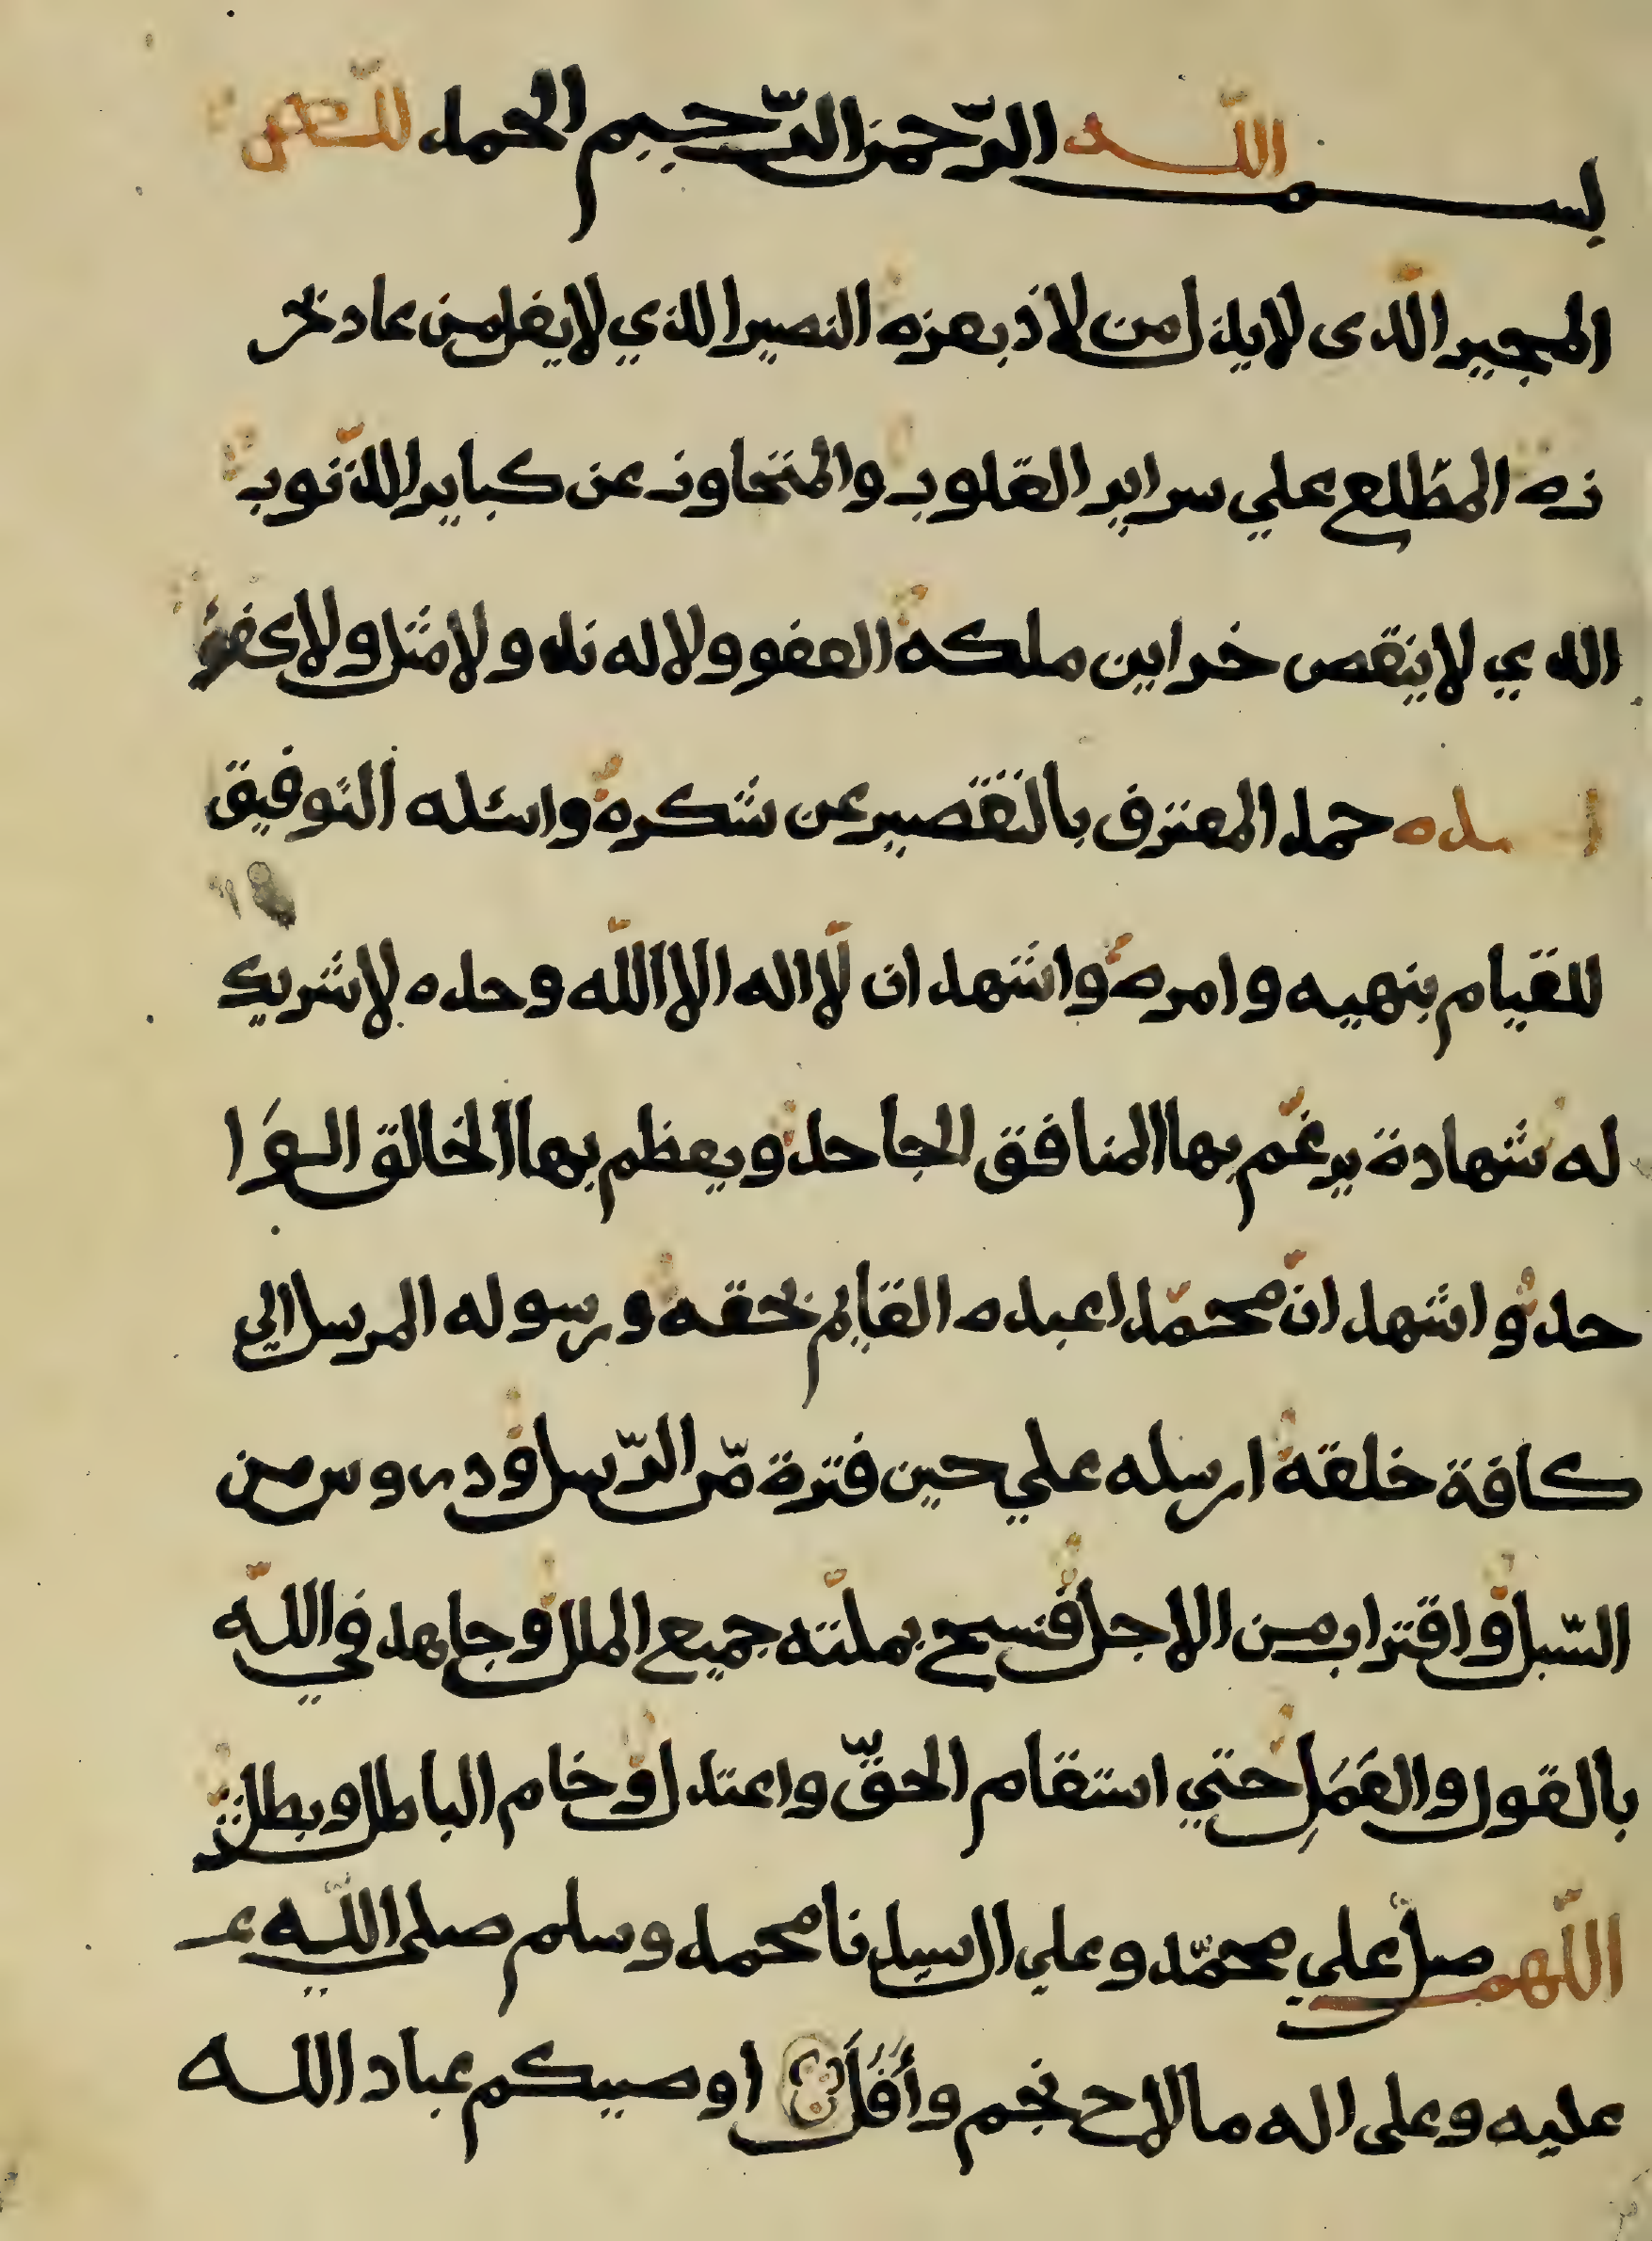 بسم اللّه الرّحمن الرّحيم الحمد للّه
المجير الّذى لايذل من لاذ بعزه النصير الذي لايفل من عاد بحر
زه المطّلع علي سراير القلوب والمتجاوز عن كباير الذّنوب
الذي لاينقص خزاين ملكه العفو ولاله ند ولامثل ولاكفؤ
حمد المعترف بالتقصير عن شكره واسئله التوفيق
للقيام بنهيه وامره واشهد ان لّااله الاالله وحده لاشريك
له شهادة يرغّم بها المنافق الجاحد ويعظم بها الخالق الوا
حد واشهد انّ محمّدا عبده القايم بحقه ورسوله المرسل الي
كافة خلقه ارسله علي حين فترة مّن الرّسل ودروس من
السّبل واقتراب من الاجل فنسح بملّته جميع الملل وجاهد في اللّه
بالقول والعَمَلِ حتي استقام الحقّ واعتدل وخام الباطل وبطل
اللّهم صل علي محمّد وعلي ال سيدنا محمد وسلم صلى اللّه ع
عليه وعلى اله ما لاح نجم وأَفَلَ اوصيكم عباد الله